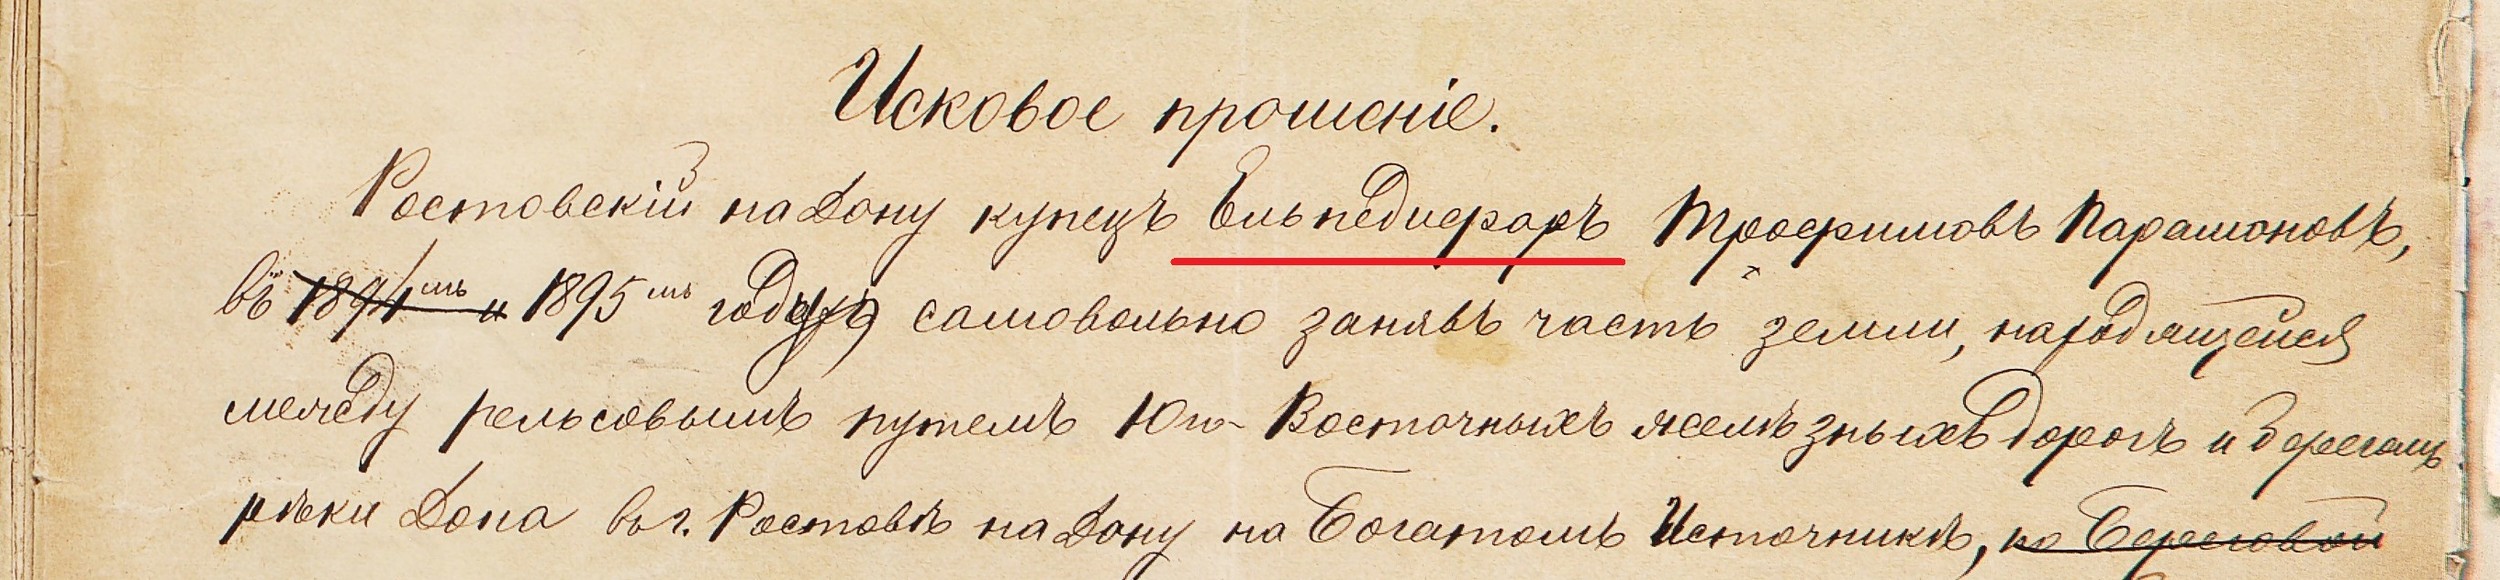 Исковое прошеніе.
Ростовскій на Дону купецъ Ельпедифоръ Трофимовъ Парамоновъ,
въ 1894мъ и 1895мъ годахъ самовольно занявъ часть земли, находящейся
между рельсовымъ путемъ Юго-Восточныхъ желѣзныхъ дорогъ и берегомъ
рѣки Дона въ г. Ростовѣ на Дону на Богатомъ Источникѣ, по Береговой